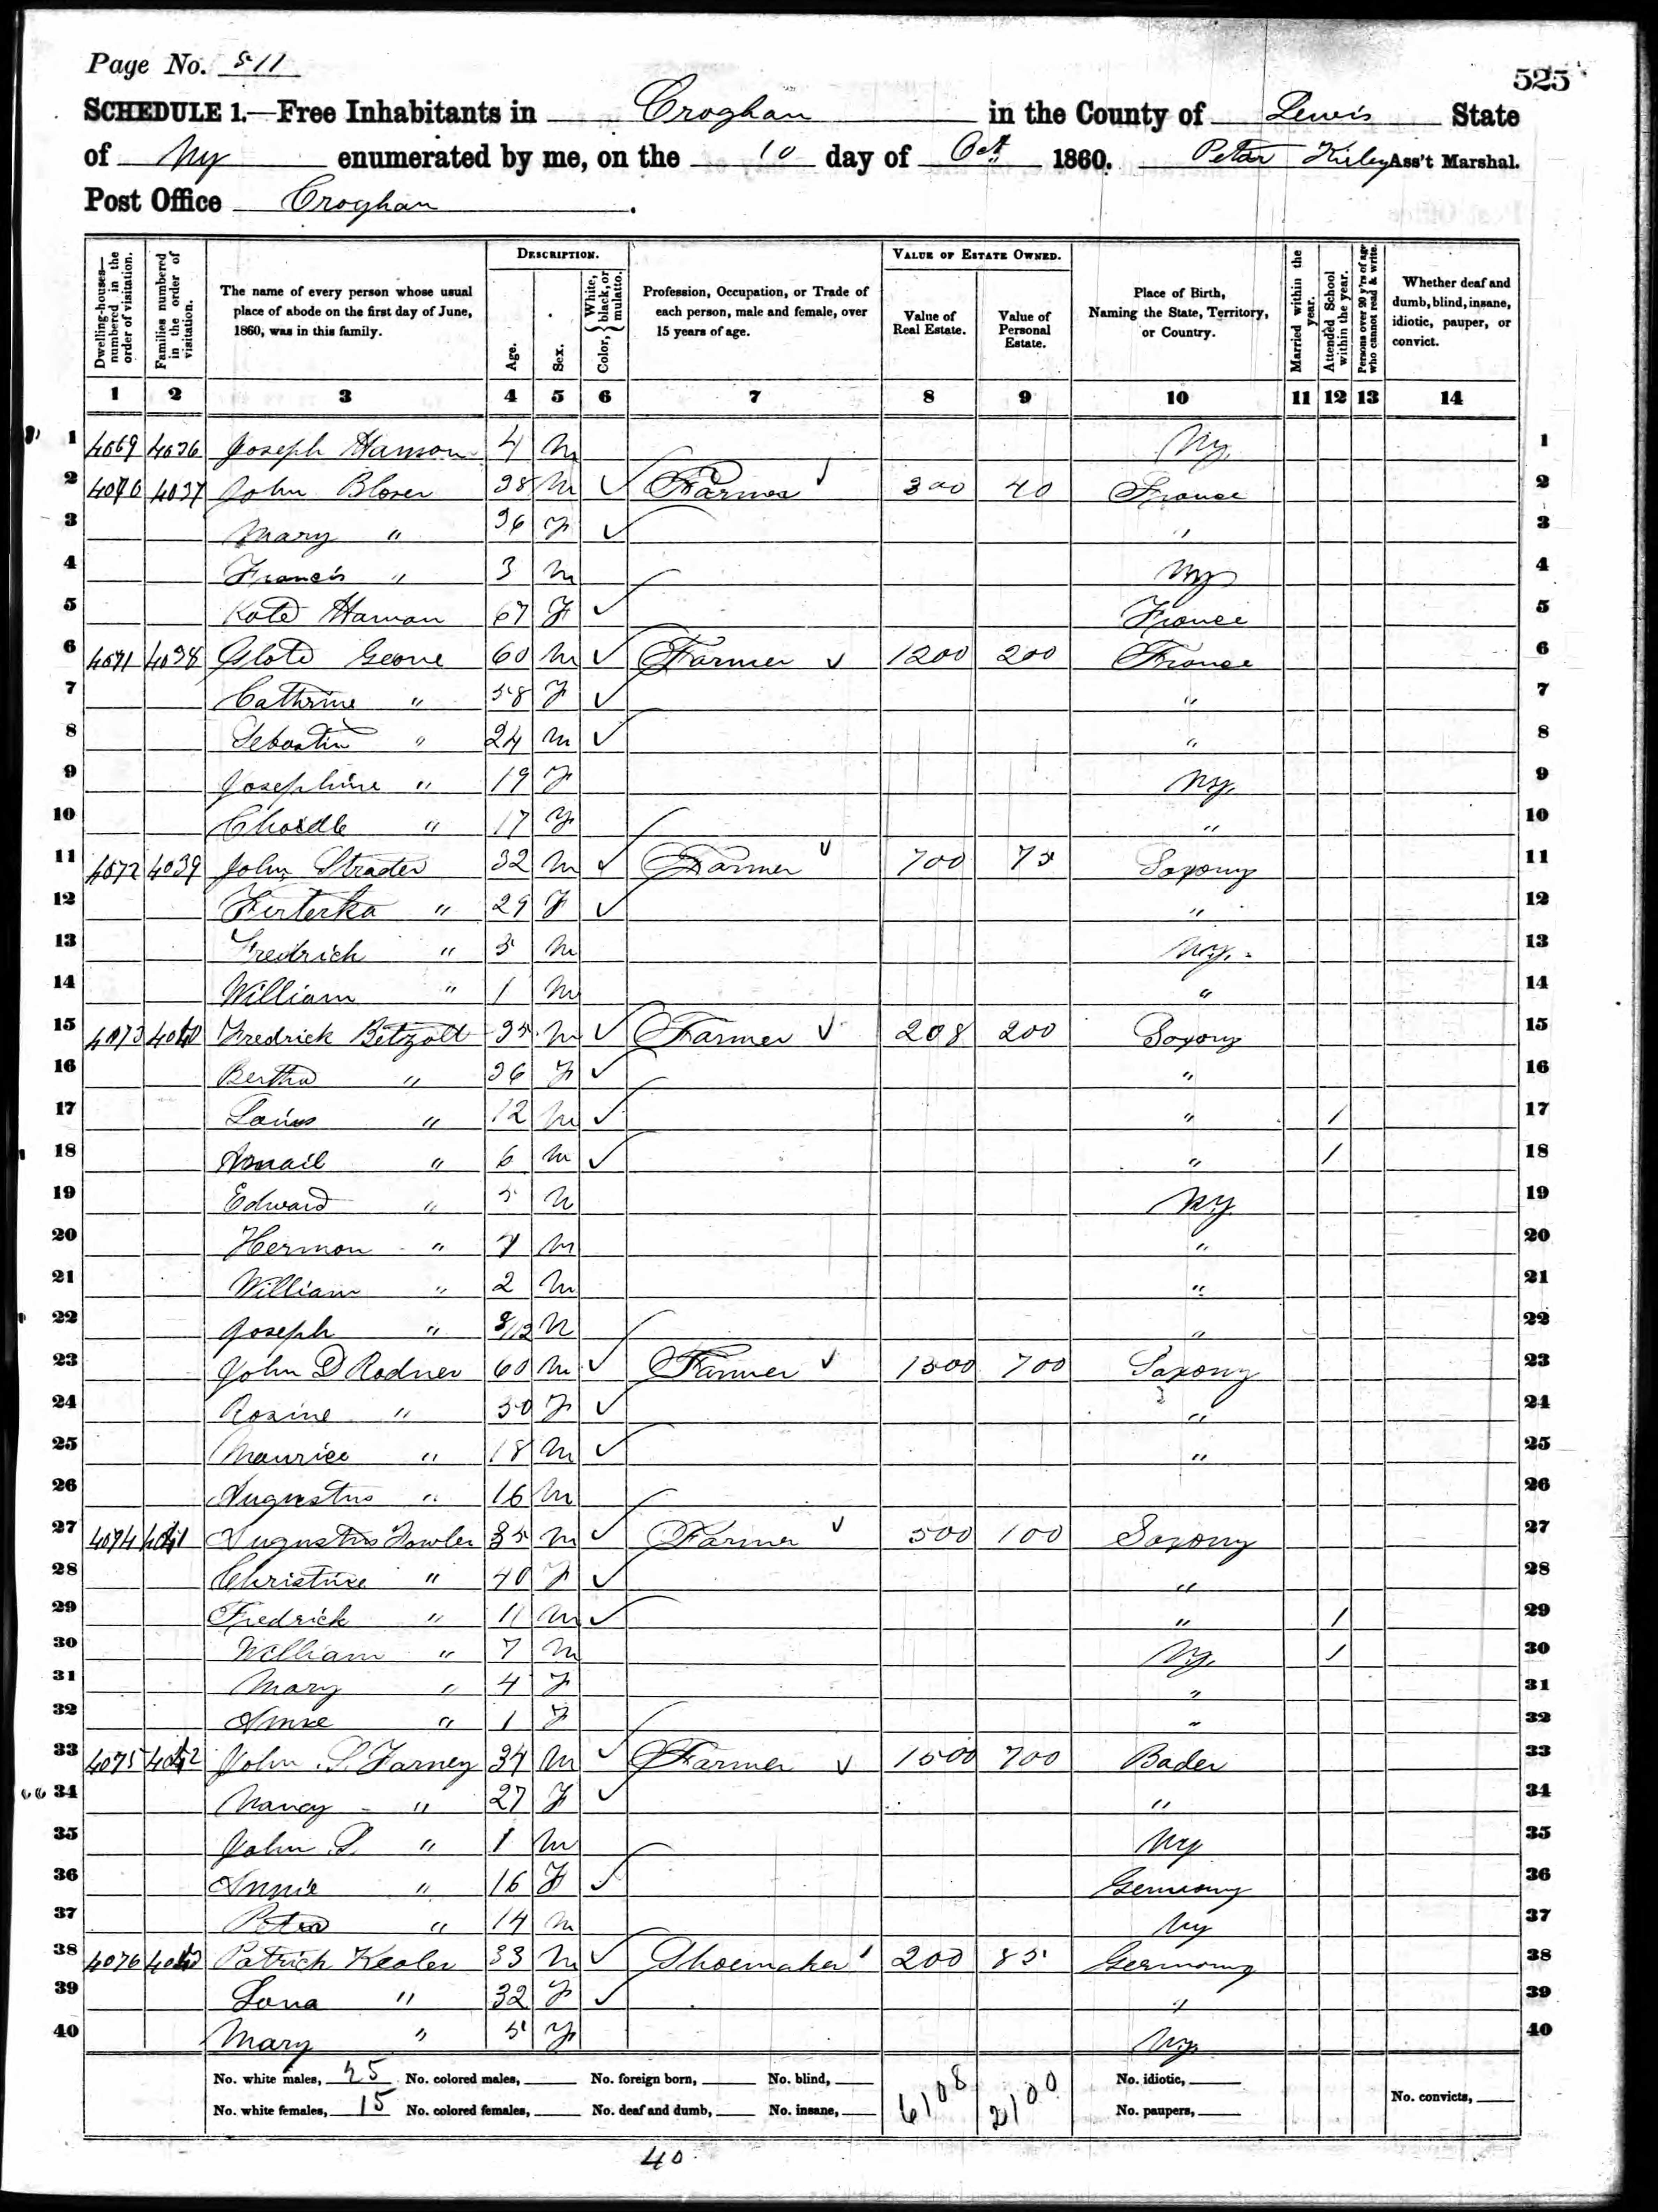 Page No. 511
525
SCHEDULE 1.—Free Inhabitants in Croghan in the County of Lewis State
of Ny enumerated by me, on the 10 day of Oct 1860. Peter Kirley Ass't Marshal.
Post Office Croghan.
Dwelling-houses—numbered in the order of visitation.
Families numbered in the order of visitation.
The name of every person whose usual place of abode on the first day of June, 1860, was in this family.
DESCRIPTION.
Age.
Sex.
Color, { White, black, or mulatto.
Profession, Occupation, or Trade of each person, male and female, over 15 years of age.
VALUE OF ESTATE OWNED.
Value of Real Estate.
Value of Personal Estate.
Place of Birth, Naming the State, Territory, or Country.
Married within the year.
Attended School within the year.
Persons over 20 y'rs of age who cannot read & write.
Whether deaf and dumb, blind, insane, idiotic, pauper, or convict.
1 2 3 4 5 6 7 8 9 10 11 12 13 14
1 4069 4036 Joseph Hamon 4 M Ny 1
2 4070 4037 John Bloser 38 M Farmer 300 40 France 2
3 Mary " 36 F " 3
4 Francis " 3 M Ny 4
5 Kate Haman 67 F France 5
6 4071 4038 Geone 60 M Farmer 1200 200 France 6
7 Cathrine " 58 F " 7
8 Sebastin " 24 M " 8
9 Josephine " 19 F Ny 9
10 " 17 F " 10
11 4072 4039 John Strader 32 M Farmer 700 75 Saxony 11
12 " 29 F " 12
13 Fredrich " 5 M Ny 13
14 William " 1 M " 14
15 4073 4040 Fredrick Betzolt 35 M Farmer 208 200 Saxony 15
16 Bertha " 36 F " 16
17 Louis " 12 M " 1 17
18 " 6 M " 1 18
19 Edward " 5 M Ny 19
20 Hermon " M " 20
21 William " 2 M " 21
22 Joseph " 8/12 M " 22
23 John D Rodner 60 M Farmer 1500 700 Saxony 23
24 Rosine " 50 F " 24
25 Maurice " 18 M " 25
26 Augustus " 16 M 26
27 4074 4041 Augustus Fowler 35 M Farmer 500 100 Saxony 27
28 Christine " 40 F " 28
29 Fredrick " 11 M " 1 29
30 William " 7 M Ny 1 30
31 Mary " 4 F " 31
32 Annie " 1 F " 32
33 4075 4042 John S. Farney 34 M Farmer 1500 700 Baden 33
34 Nancy " 27 F " 34
35 John S. " 1 M Ny 35
36 Annie " 16 F Germany 36
37 Peter " 14 M Ny 37
38 4076 4043 Patrick Kealer 33 M Shoemaker 200 85 Germany 38
39 Lona " 32 F " 39
40 Mary " 5 F Ny 40
No. white males, 25 No. colored males, No. foreign born, No. blind, 6108 2100 No. idiotic,
No. white females, 15 No. colored females, No. deaf and dumb, No. insane, No. paupers, No. convicts,
40